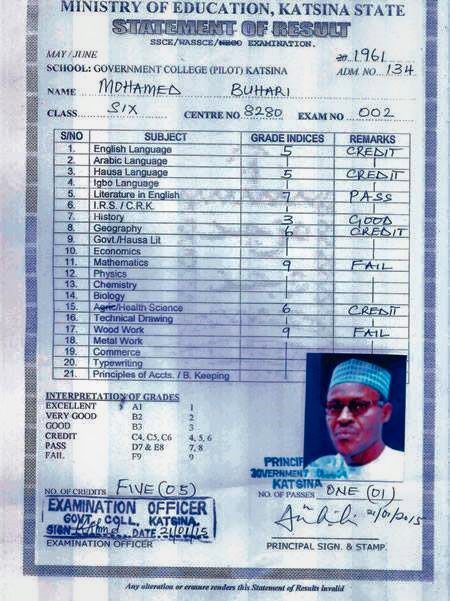 MINISTRY OF EDUCATION, KATSINA STATE
STATEMENT OF RESULT
SSCE/WASSCE/NECO EXAMINATION.
MAY / JUNE 20 1961
SCHOOL: GOVERNMENT COLLEGE (PILOT) KATSINA ADM. NO. 134
NAME MOHAMED BUHARI
CLASS SIX CENTRE NO 8280 EXAM NO 002
S/NO SUBJECT GRADE INDICES REMARKS
1. English Language 5 CREDIT
2. Arabic Language
3. Hausa Language 5 CREDIT
4. Igbo Language
5. Literature in English 7 PASS
6. I.R.S. / C.R.K.
7. History 3 GOOD
8. Geography 6 CREDIT
9. Govt./Hausa Lit
10. Economics
11. Mathematics 9 FAIL
12. Physics
13. Chemistry
14. Biology
15. Agric/Health Science 6 CREDIT
16. Technical Drawing
17. Wood Work 9 FAIL
18. Metal Work
19. Commerce
20. Typewriting
21. Principles of Accts. / B. Keeping
INTERPRETATION OF GRADES
EXCELLENT A1 1
VERY GOOD B2 2
GOOD B3 3
CREDIT C4, C5, C6 4, 5, 6
PASS D7 & E8 7, 8
FAIL F9 9
PRINCIP
GOVERNMENT
KATSINA
NO. OF CREDITS FIVE (05) NO. OF PASSES ONE (01)
EXAMINATION OFFICER
GOVT. COLL, KATSINA
SIGN DATE 21/01/15
21/01/2015
EXAMINATION OFFICER PRINCIPAL SIGN. & STAMP.
Any alteration or erasure renders this Statement of Results invalid